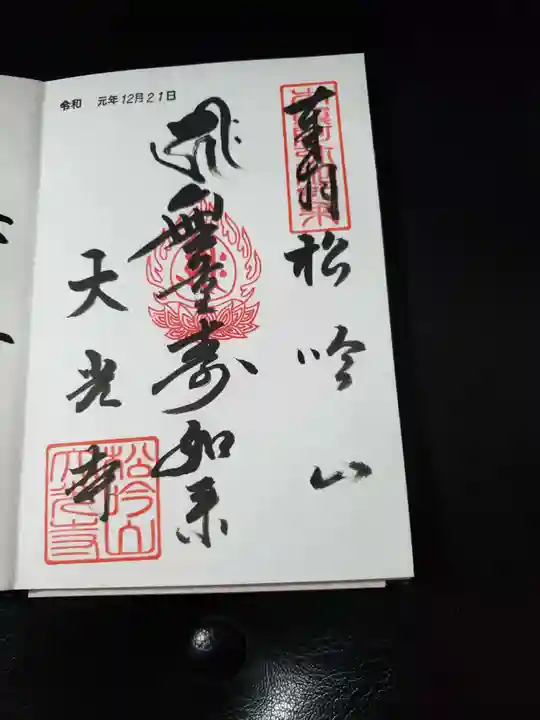 令和 元年12月21日
奉拝
松吟山
無量寿如来
天光寺
松吟山
天光寺